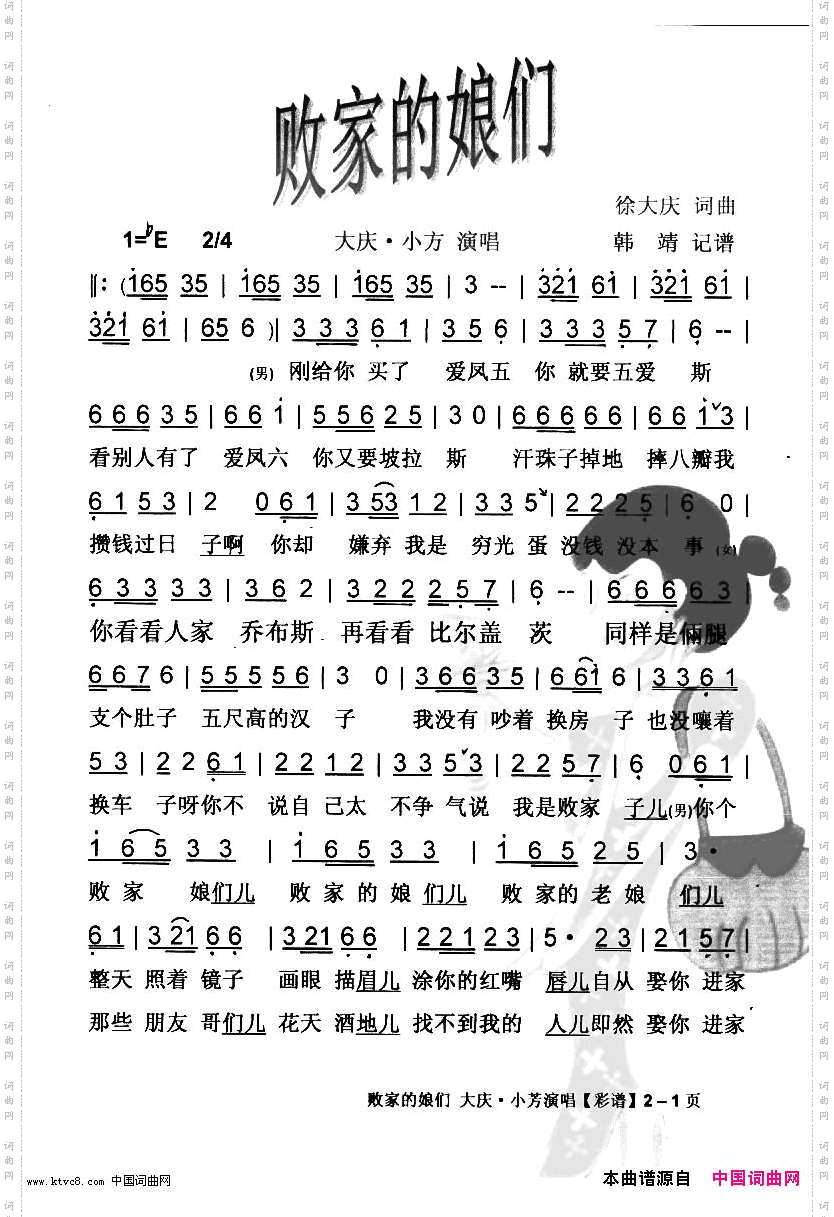 败家的娘们
徐大庆 词曲
1=♭E 2/4 大庆·小方 演唱 韩 靖 记谱
‖: (165 35 | 165 35 | 165 35 | 3 -- | 321 61 | 321 61 |
321 61 | 65 6 )| 3 3 3 6 1 | 3 5 6 | 3 3 3 5 7 | 6 -- |
(男) 刚给你 买了 爱凤五 你 就要五爱 斯
6 6 6 3 5 | 6 6 1 | 5 5 6 2 5 | 3 0 | 6 6 6 6 6 | 6 6 1ˇ3 |
看别人有了 爱凤六 你又要坡拉 斯 汗珠子掉地 摔八瓣我
6 1 5 3 | 2 0 6 1 | 3 53 1 2 | 3 3 5ˇ | 2 2 2 5 | 6 0 |
攒钱过日 子啊 你却 嫌弃 我是 穷光 蛋 没钱 没本 事 (女)
6 3 3 3 3 | 3 6 2 | 3 2 2 2 5 7 | 6 -- | 6 6 6 6 3 |
你看看人家 乔布斯 再看看 比尔盖 茨 同样是俩腿
6 6 7 6 | 5 5 5 5 6 | 3 0 | 6 6 6 3 5 | 6 61 6 | 3 3 6 1
支个肚子 五尺高的汉 子 我没有 吵着 换房 子 也没嚷着
5 3 | 2 2 6 1 | 2 2 1 2 | 3 3 5ˇ3 | 2 2 5 7 | 6 0 6 1 |
换车 子呀你不 说自 己太 不争 气说 我是败家 子儿(男)你个
1 6 5 3 3 | 1 6 5 3 3 | 1 6 5 2 5 | 3 ·
败 家 娘们儿 败 家 的 娘 们儿 败 家的 老 娘 们儿
6 1 | 3 21 6 6 | 3 21 6 6 | 2 2 1 2 3 | 5 · 2 3 | 2 1 5 7 |
整天 照着 镜子 画眼 描眉儿 涂你的红嘴 唇儿自从 娶你 进家
那些 朋友 哥们儿 花天 酒地儿 找不到我的 人儿即然 娶你 进家
败家的娘们 大庆·小芳演唱【彩谱】2－1页
www.ktvc8.com 中国词曲网
本曲谱源自 中国词曲网